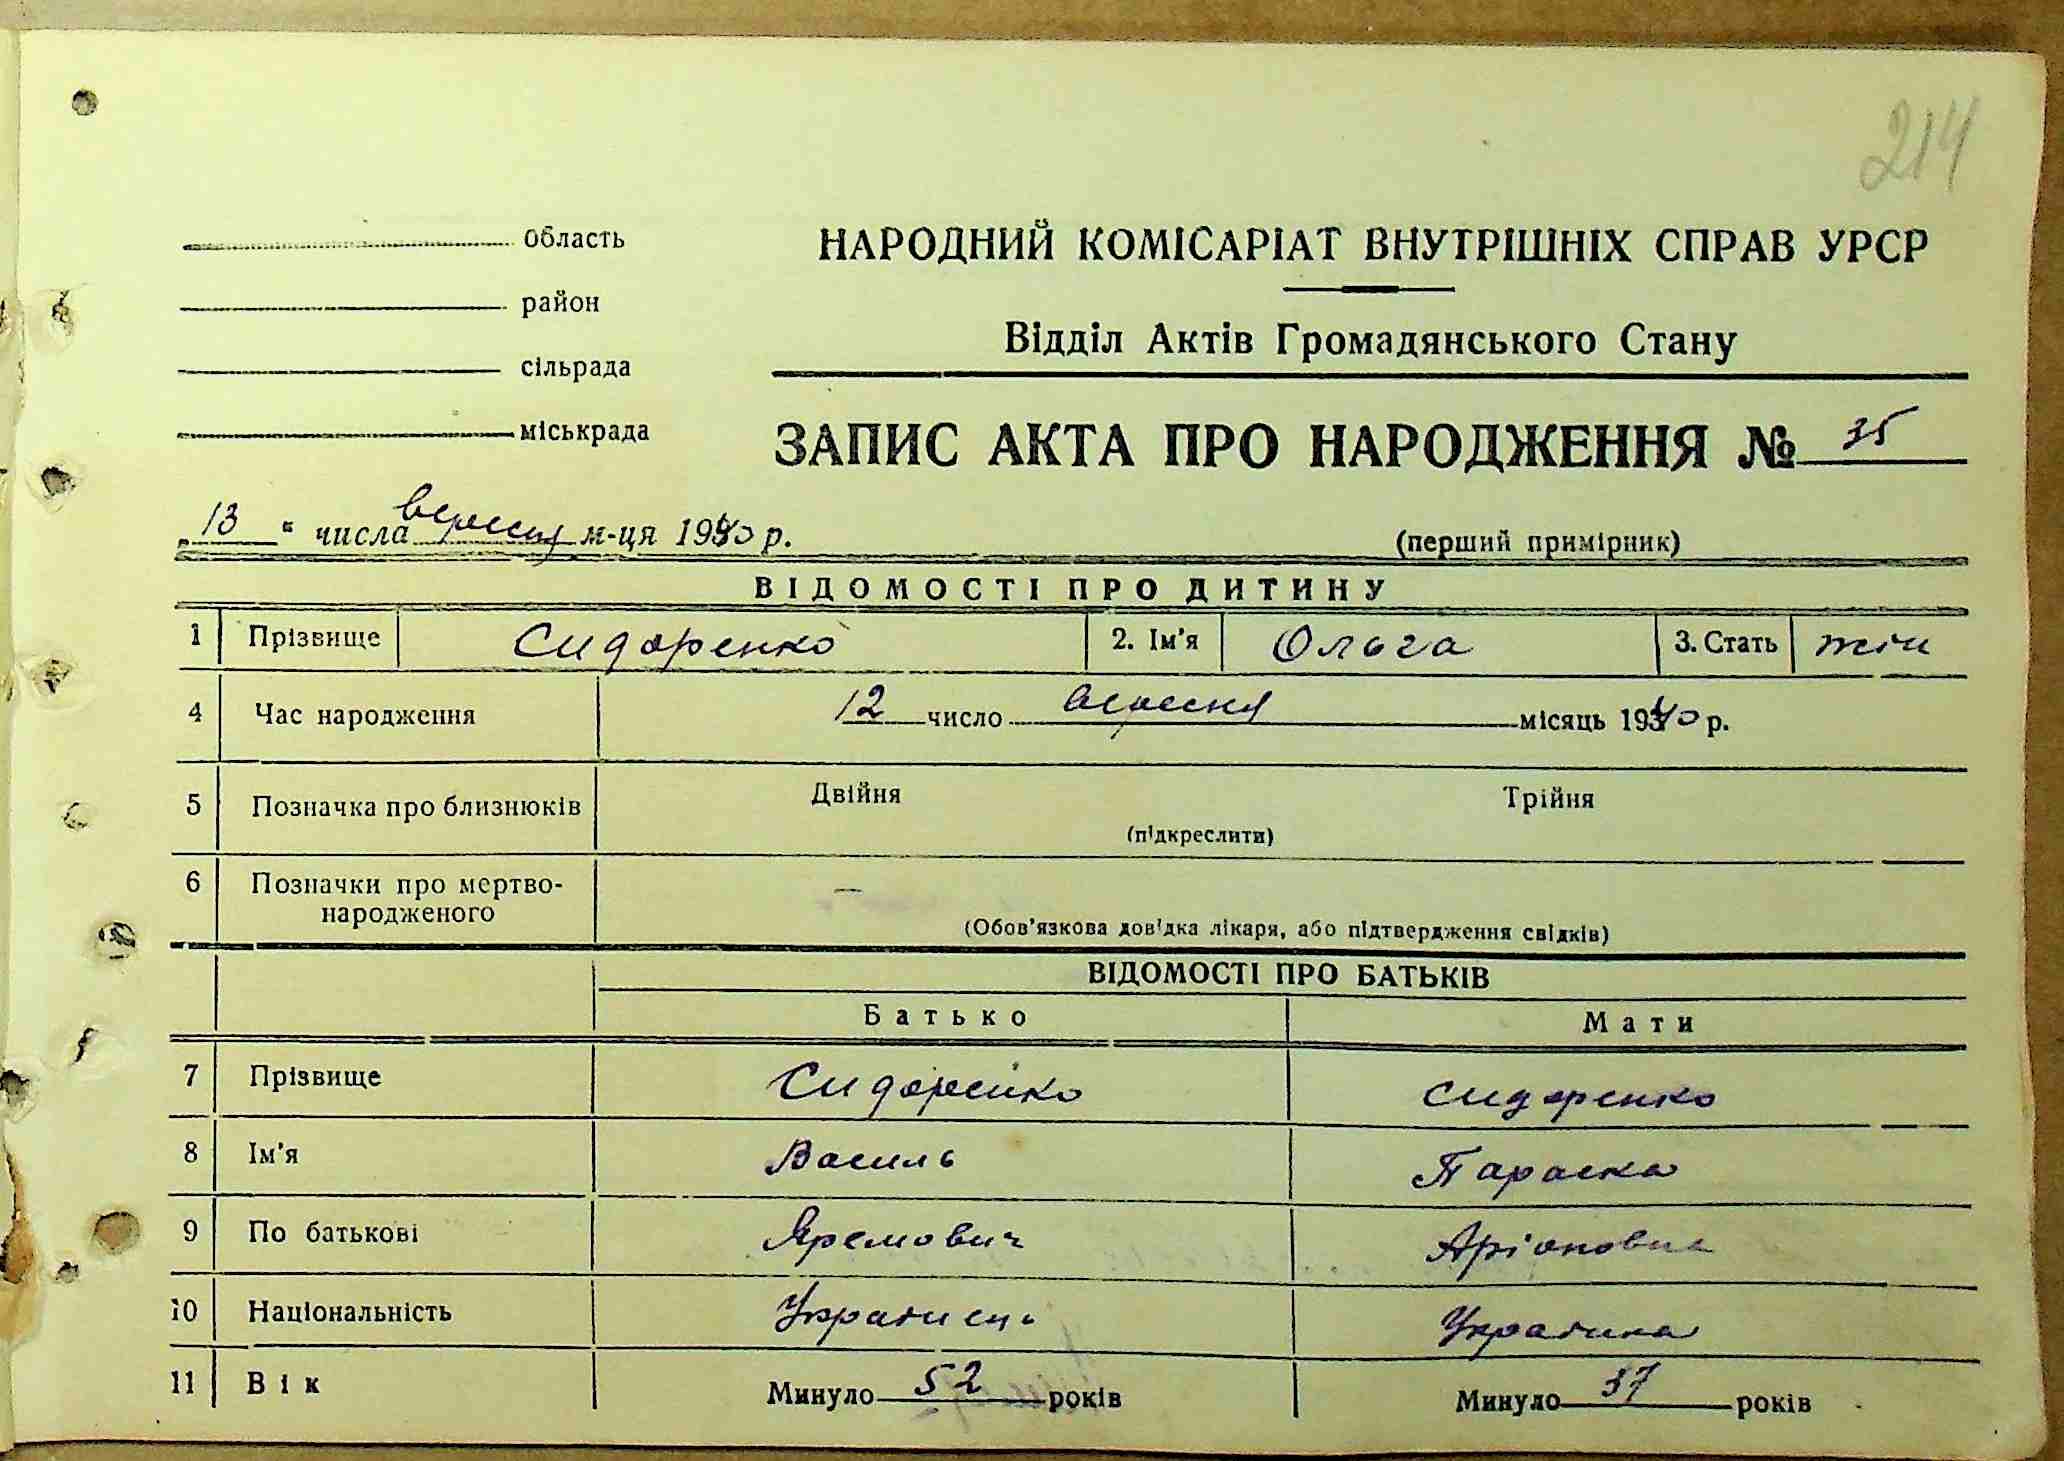 214
область
район
сільрада
міськрада
НАРОДНИЙ КОМІСАРІАТ ВНУТРІШНІХ СПРАВ УРСР
Відділ Актів Громадянського Стану
ЗАПИС АКТА ПРО НАРОДЖЕННЯ № 35
„13“ числа вересня м-ця 1940 р.
(перший примірник)
ВІДОМОСТІ ПРО ДИТИНУ
1 Прізвище Сидоренко 2. Ім'я Ольга 3. Стать жін
4 Час народження 12 число вересня місяць 1940 р.
5 Позначка про близнюків Двійня Трійня
(підкреслити)
6 Позначки про мертво-
народженого —
(Обов'язкова довідка лікаря, або підтвердження свідків)
ВІДОМОСТІ ПРО БАТЬКІВ
Батько Мати
7 Прізвище Сидоренко Сидоренко
8 Ім'я Василь Параска
9 По батькові Яремович Аріоновна
10 Національність Українець Українка
11 Вік Минуло 52 років Минуло 37 років